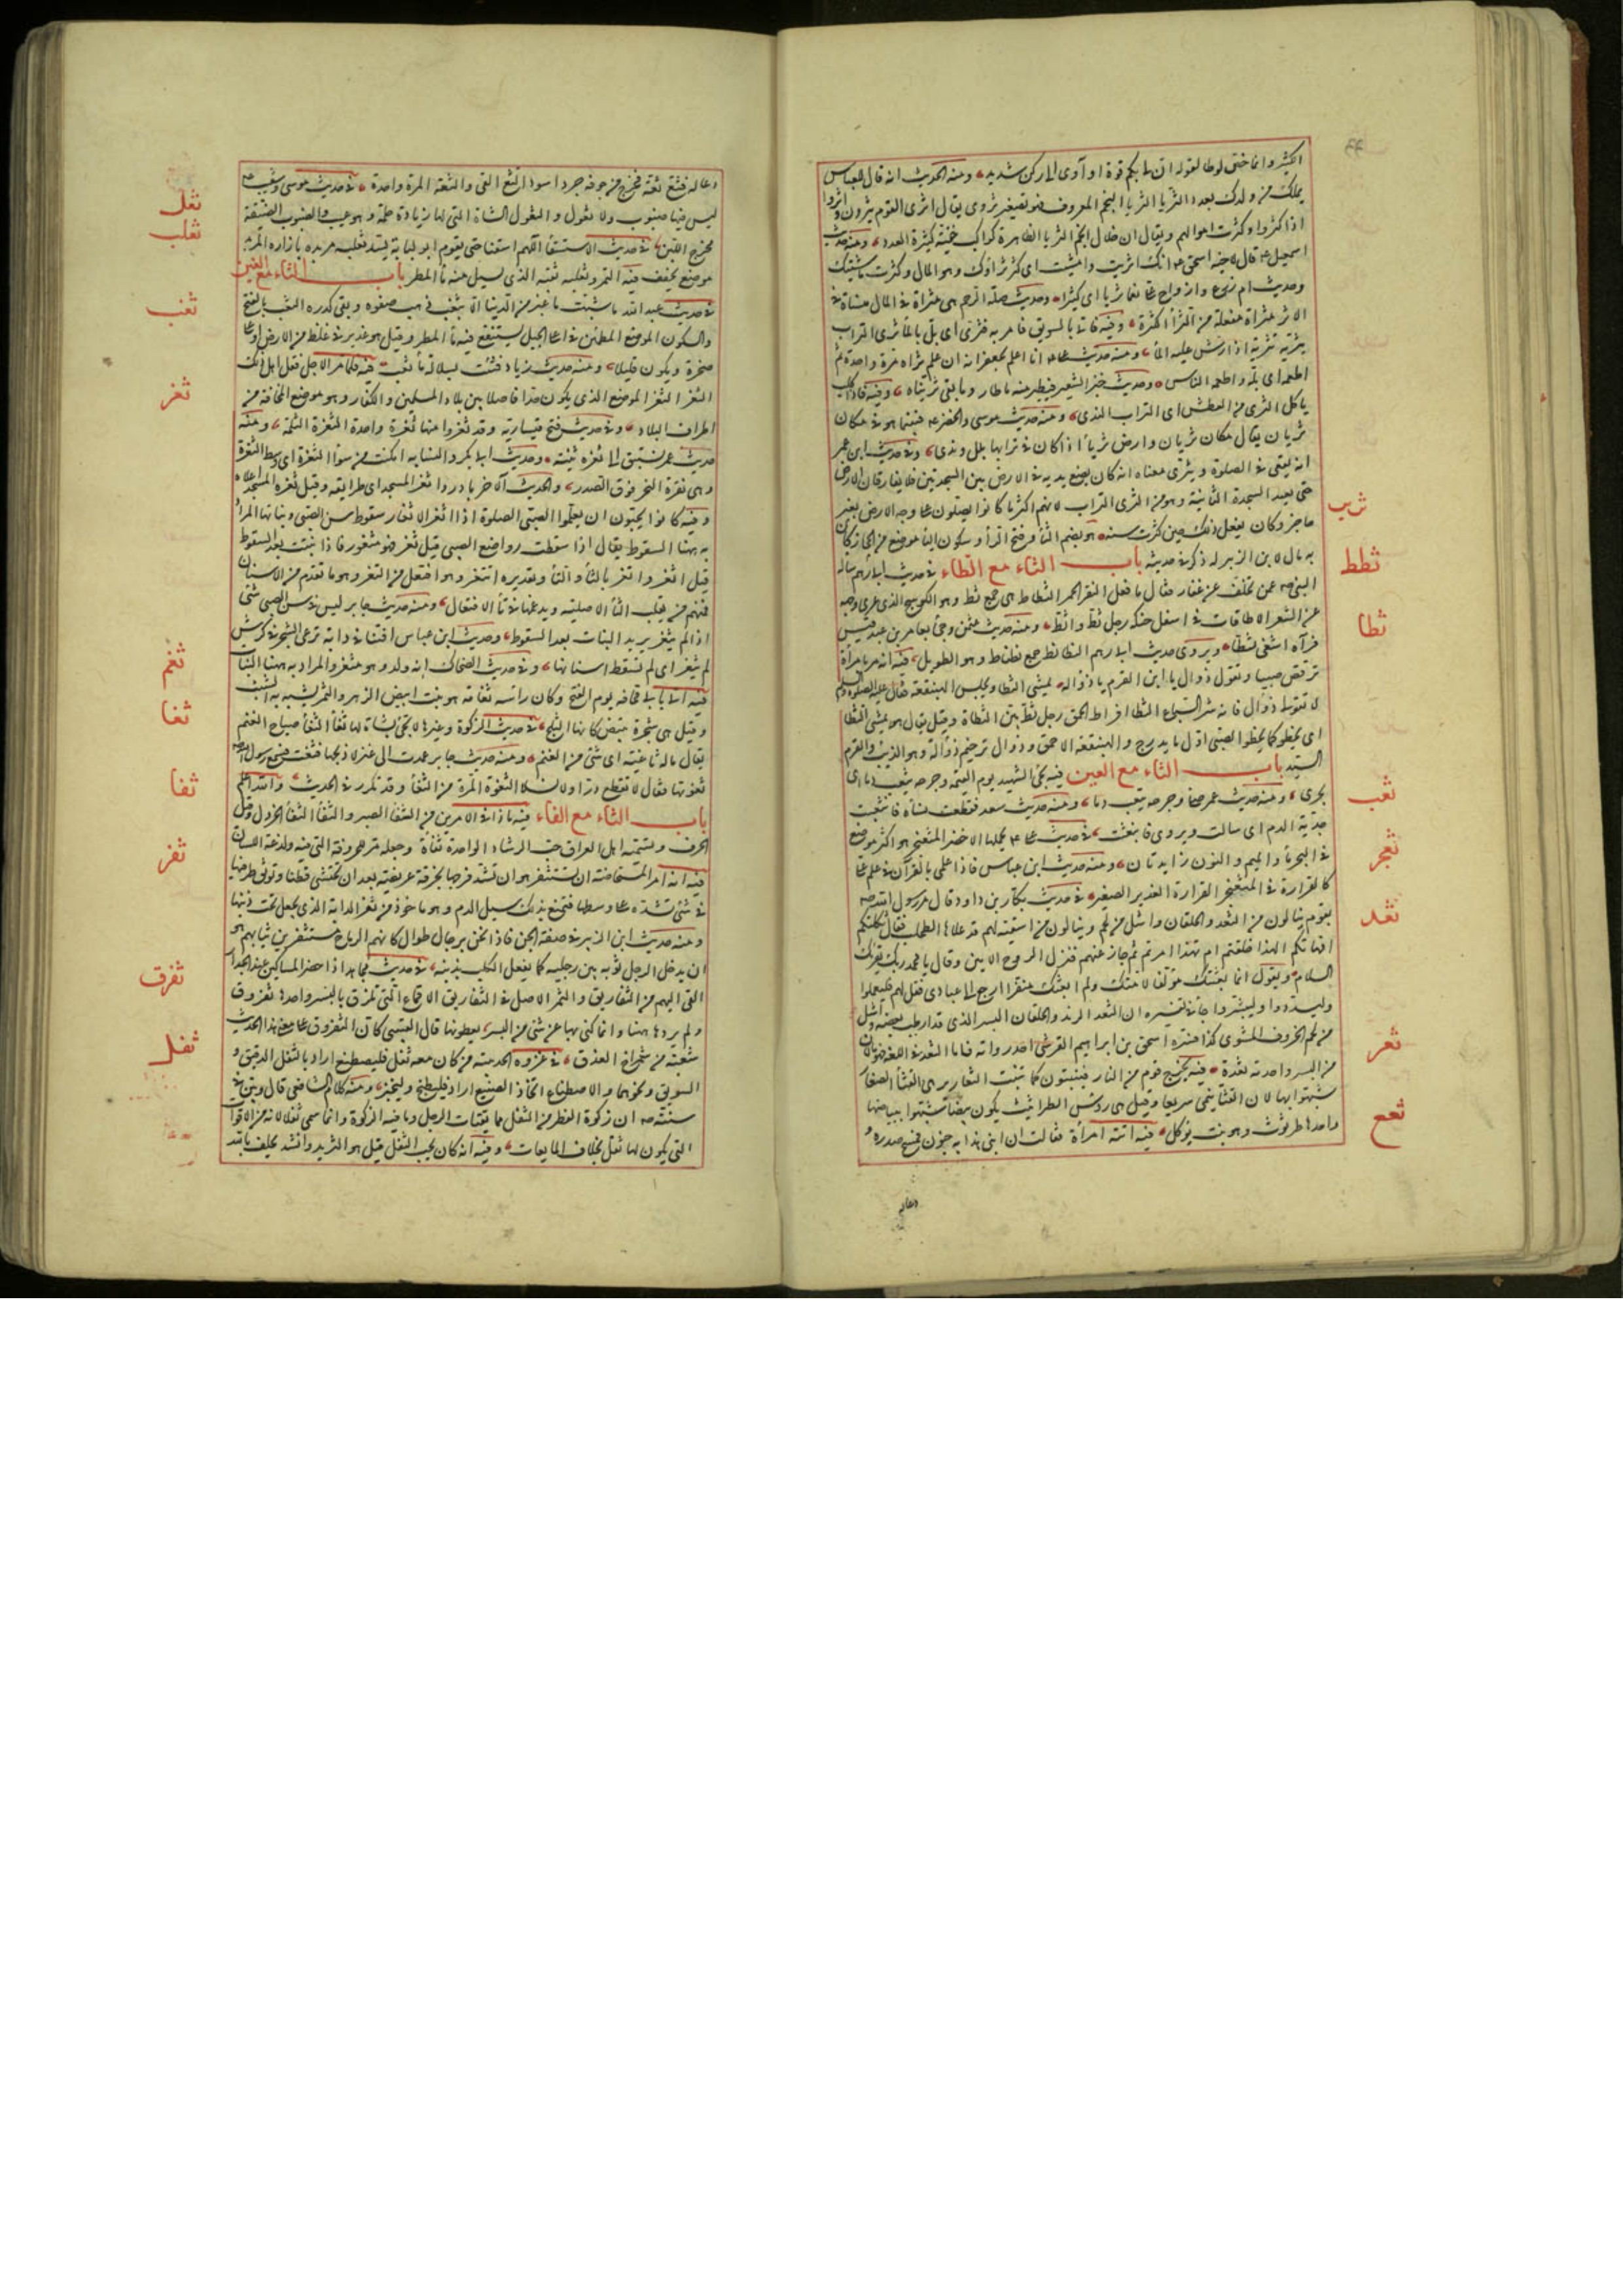 الكثير وانما خص لوطا لقوله ان لى بكم قوة او آوى الى ركن شديد ومنه الحديث انه قال للعباس
يملك من ولدك بعدد الثريا الثريا النجم المعروف هو تصغير ثروى يقال اثرى القوم يثرون واثروا
اذا كثروا وكثرت اموالهم ويقال ان خلال انجم الثريا الظاهرة كواكب خفية كثيرة العدد ومنه حديث
اسمعيل ع قال لاخيه اسحق ع انك اثريت وامشيت اى كثر ثراؤك وهو المال وكثرت ماشيتك
وحديث ام زرع واراح على نعما ثريا اى كثيرا وحديث صلة الرحم هى مثراة فى المال منساة فى
الاثر مثراة مفعلة من الثرآ الكثرة وفيه فاتى بالسويق فامر به فثرى اى بل بالمآ ثرى التراب
يثريه تثرية اذا رش عليه المآ ومنه حديث على ع انا اعلم بجعفر انه ان علم ثراه مرة واحدة ثم
اطعمه اى بله واطعمه الناس وحديث خبز الشعير فيطير منه ما طار وما بقى ثريناه وفيه فاذا كلب
ياكل الثرى من العطش اى التراب الندى ومنه حديث موسى والخضر ع فبينما هو فى مكان
ثريان يقال مكان ثريان وارض ثريآ اذا كان فى ترابها بلل وندى وفى حديث ابن عمر
انه يقعى فى الصلوة ويثرى معناه انه كان يضع يديه فى الارض بين السجدتين فلا يفارقان الارض
حتى يعيد السجدة الثانية وهو من الثرى التراب لانهم اكثر ما كانوا يصلون على وجه الارض بغير
حاجز وكان يفعل ذلك حين كثرت سنه هو بضم الثآ وفتح الرآ وسكون اليآ موضع من الحجاز كان
به مال لابن الزبير له ذكر فى حديثه باب الثاء مع الطاء فى حديث ابى رهم ساله
النبى صه عمن تخلف من غفار فقال ما فعل النفر الحمر الثطاط هى جمع ثط وهو الكوسج الذى عرى وجهه
من الشعر الا طاقات فى اسفل حنكه رجل ثط واثط ومنه حديث عثمن وجئ بعامر بن عبد قيس
فرآه اشغى ثطا ويروى حديث ابى رهم النطانط جمع نطناط وهو الطويل فيه انه مر بامرأة
ترقص صبيا وتقول ذوال يا ابن القرم يا ذواله يمشى الثطا ويجلس الهبنقعه فقال عليه الصلوة والسلم
لا تقولى ذوال فانه شر السباع الثطا افراط الحمق رجل ثط بين الثطاة وقيل يقال هو يمشى الثطا
اى يخطو كما يخطو الصبى اول ما يدرج والهبنقعة الاحمق وذوال ترخيم ذوالة وهو الذئب والقرم
السيد باب الثاء مع العين فيه يجئ الشهيد يوم القيمه وجرحه يثعب دما اى
يجرى ومنه حديث عمر صلى وجرحه يثعب دما ومنه حديث سعد فقطعت نساه فانثعبت
جدية الدم اى سالت ويروى فانبعثت فى حديث على ع يحملها الاخضر المثعنجر هو اكثر موضع
فى البحر مآ والميم والنون زايدتان ومنه حديث ابن عباس فاذا علمى بالقرآن فى علم على
كالقرارة فى المثعنجر القرارة الغدير الصغير فى حديث بكار بن داود قال مر رسول الله صه
بقوم ينالون من الثعد والحلقان واشل من لحم وينالون من اسقية لهم قد علاها الطحلب فقال ثكلتكم
امهاتكم الهذا خلقتم ام بهذا امرتم ثم جاز عنهم فنزل الروح الامين وقال يا محمد ربك يقرئك
السلام ويقول انما بعثتك مؤلفا لامتك ولم ابعثك منفرا ارجع الى عبادى فقل لهم فليعملوا
وليسددوا وليبشروا جآ فى تفسيره ان الثعد الزبد والحلقان البسر الذى قد ارطب بعضه واشل
من لحم الخروف المشوى كذا فسره اسحق بن ابراهيم القرشى احد رواته فاما الثعد فى اللغة فهو ما لان
من البسر واحدته ثعدة فيه يخرج قوم من النار فينبتون كما تنبت الثعارير هى القثآ الصغار
شبهوا بها لان القثآ ينمى سريعا وقيل هى رؤس الطراثيث يكون بيضا شبهوا ببياضها
واحدها طرثوث وهو نبت يؤكل فيه اتته امرأة فقالت ان ابنى هذا به جنون فمسح صدره و
دعا له
ثرير
ثطط
ثطا
ثعب
ثعجر
ثعد
ثعر
ثعع
دعا له فثع ثعة فخرج من جوفه جرو اسود الثع القئ والثعة المرة واحدة فى حديث موسى وشعيب ع
ليس فيها ضبوب ولا ثعول والثعول الشاة التى لها زيادة حلمة وهو عيب والضبوب الضيقة
مخرج اللبن فى حديث الاستسقآ اللهم اسقنا حتى يقوم ابو لبابة يسد ثعلب مربده بازاره المربد
موضع يجفف فيه التمر وثعلبه ثقبه الذى يسيل منه مآ المطر باب الثاء مع الغين
فى حديث عبد الله ما شبهت ما غبر من الدنيا الا بثغب ذهب صفوه وبقى كدره الثغب بالفتح
والسكون الموضع المطمئن فى اعلى الجبل يستنقع فيه مآ المطر وقيل هو غدير فى غلظ من الارض او على
صخرة ويكون قليلا ومنه حديث زياد فثئت بسلالة مآ ثغب فيه فلما مر الاجل قفل اهل ذلك
الثغر الثغر الموضع الذى يكون حدا فاصلا بين بلاد المسلمين والكفار وهو موضع المخافة من
اطراف البلاد وفى حديث فتح قيسارية وقد ثغروا منها ثغرة واحدة الثغرة الثلمة ومنه
حديث عمر تستبق الى ثغرة ثنية وحديث ابى بكر والنسابه امكنت من سوآ الثغرة اى وسط الثغرة
وهى نقرة النحر فوق الصدر والحديث الآخر بادروا ثغر المسجد اى طرايقه وقيل ثغرة المسجد اعلاه
وفيه كانوا يحبون ان يعلموا الصبى الصلوة اذا اثغر الاثغار سقوط سن الصبى ونباتها المراد
به ههنا السقوط يقال اذا سقطت رواضع الصبى قيل ثغر فهو مثغور فاذا نبتت بعد السقوط
قيل اثغر واتغر بالثآ والتآ وتقديره اثتغر وهو افتعل من الثغر وهو ما تقدم من الاسنان
فمنهم من يقلب الثآ الاصلية ويدغمها فى تآ الافتعال ومنه حديث جابر ليس فى سن الصبى شئ
اذا لم يثغر يريد النبات بعد السقوط وحديث ابن عباس افتنا فى دابة ترعى الشجر فى كرش
لم تثغر اى لم تسقط اسنانها وفى حديث الضحاك انه ولد وهو مثغر والمراد به ههنا النبات
فيه اتى بابى قحافه يوم الفتح وكان راسه ثغامة هو نبت ابيض الزهر والثمر يشبه به الشيب
وقيل هى شجرة تبيض كانها الثلج فى حديث الزكوة وغيرها لا تجئ بشاة لها ثغآ الثغآ صياح الغنم
يقال ماله ثاغية اى شئ من الغنم ومنه حديث جابر عمدت الى عنز لاذبحها فثغت فسمع رسول الله صه
ثغوتها فقال لا تقطع درا ولا نسلا الثغوة المرة من الثغآ وقد تكرر فى الحديث والله اعلم
باب الثاء مع الفاء فيه ما ذا فى الامرين من الثفآ الصبر والثفآ الثفآ الخردل وقيل
الحرف ويسميه اهل العراق حب الرشاد الواحدة ثفآة وجعله مرا لحروفة التى فيه ولذعة اللسان
فيه انه امر المستحاضة ان تستثفر هو ان تشد فرجها بخرقة عريضة بعد ان تحتشى قطنا وتوثق طرفيها
فى شئ تشده على وسطها فتمنع بذلك سيل الدم وهو ماخوذ من ثفر الدابة الذى يجعل تحت ذنبها
ومنه حديث ابن الزبير فى صفة الجن فاذا نحن برجال طوال كانهم الرماح مستثفرين ثيابهم هو
ان يدخل الرجل ثوبه بين رجليه كما يفعل الكلب بذنبه فى حديث مجاهد اذا حضر المساكين عند الجداد
القى اليهم من الثفاريق والتمر الاصل فى الثفاريق الاقماع التى تلزق بالبسر واحدها ثفروق
ولم يردها ههنا وانما كنى بها عن شئ من البسر يعطونها قال القتيبى كان الثفروق على معنى هذا الحديث
شعبة من شمراخ العذق فى غزوه الحديبية من كان معه ثفل فليصطنع اراد بالثفل الدقيق و
السويق ونحوهما والاصطناع اتخاذ الصنيع اراد فليطبخ وليختبز ومنه كلام الشافعى قال وبين فى
سنته صه ان زكوة الفطر من الثفل مما يقتات الرجل وما فيه الزكوة وانما سمى ثفلا لانه من الاقوات
التى يكون لها ثفل بخلاف المايعات وفيه انه كان يحب الثفل قيل هو الثريد وانشد يحلف بالله
ثعل
ثعلب
ثغب
ثغر
ثغم
ثغا
ثفا
ثفر
ثفرق
ثفل